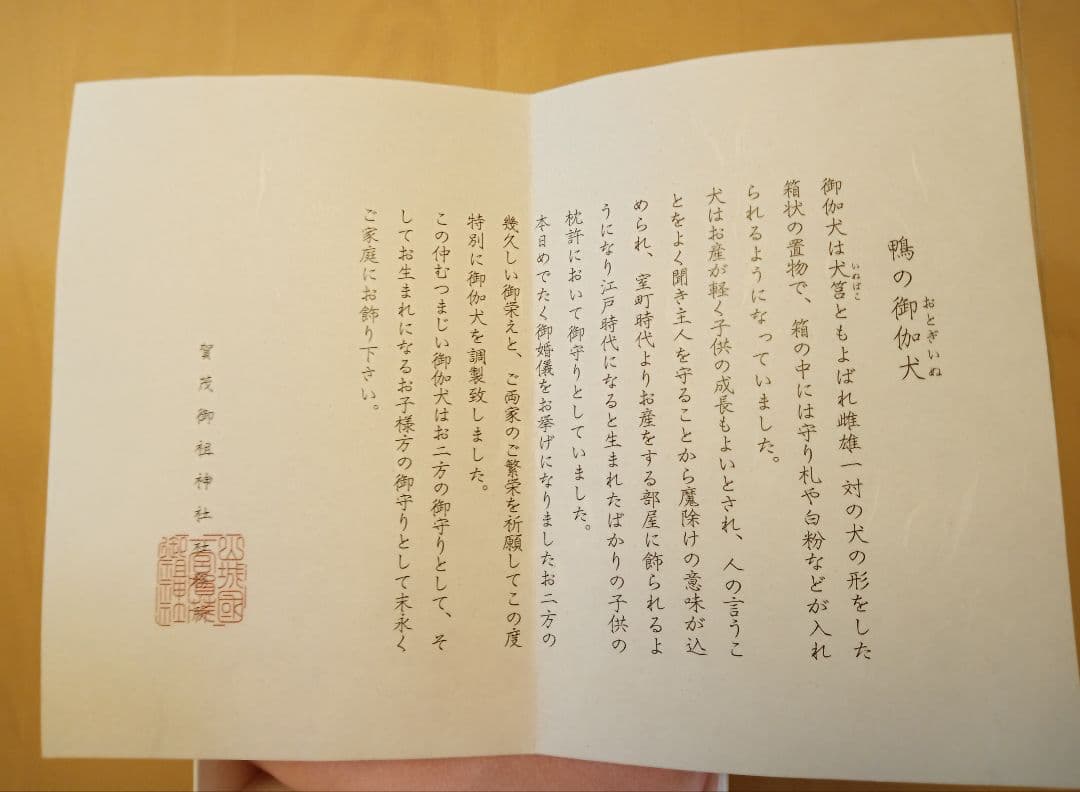 鴨の御伽犬
おとぎいぬ
御伽犬は犬筥ともよばれ雌雄一対の犬の形をした
いぬばこ
箱状の置物で、箱の中には守り札や白粉などが入れ
られるようになっていました。
犬はお産が軽く子供の成長もよいとされ、人の言うこ
とをよく聞き主人を守ることから魔除けの意味が込
められ、室町時代よりお産をする部屋に飾られるよ
うになり江戸時代になると生まれたばかりの子供の
枕許において御守りとしていました。
本日めでたく御婚儀をお挙げになりましたお二方の
幾久しい御栄えと、ご両家のご繁栄を祈願してこの度
特別に御伽犬を調製致しました。
この仲むつまじい御伽犬はお二方の御守りとして、そ
してお生まれになるお子様方の御守りとして末永く
ご家庭にお飾り下さい。
賀茂御祖神社